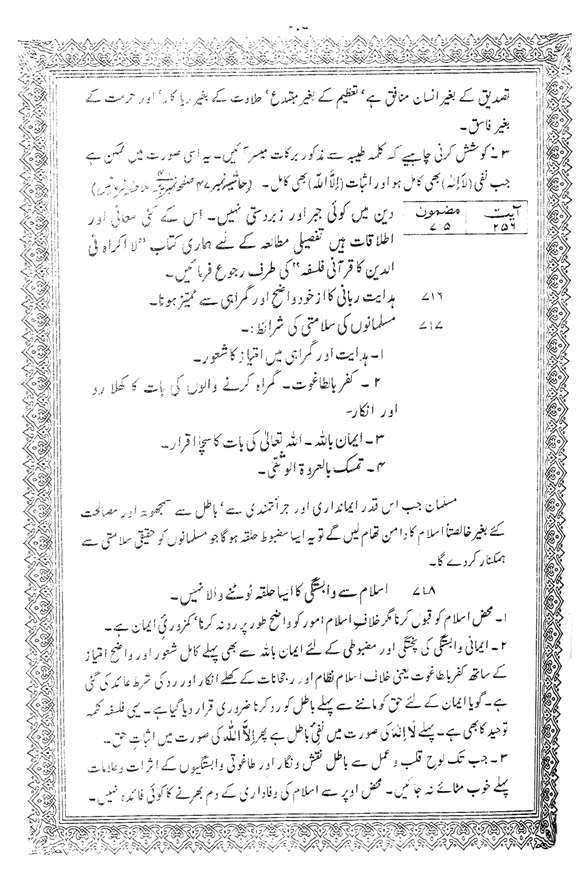 ۲۰۶
تصدیق کے بغیر انسان منافق ہے‘ تعظیم کے بغیر مبتدع‘ حلاوت کے بغیر ریا کار‘ اور حرمت کے
بغیر فاسق۔
۳۔ کوشش کرنی چاہیے کہ کلمہ طیبہ سے مذکور برکات میسر آئیں۔ یہ اسی صورت میں ممکن ہے
جب نفی (لا إله) بھی کامل ہو اور اثبات (إلا الله) بھی کامل۔ (حاشیہ نمبر ۴۷ صفحہ نمبر
آیت مضمون
۲۵۶ ۷۱۵
دین میں کوئی جبر اور زبردستی نہیں۔ اس کے کئی معانی اور
اطلاقات ہیں تفصیلی مطالعہ کے لئے ہماری کتاب ”لا اکراہ فی
الدین کا قرآنی فلسفہ“ کی طرف رجوع فرمائیں۔
۷۱۶ ہدایت ربانی کا از خود واضح اور گمراہی سے ممیز ہونا۔
۷۱۷ مسلمانوں کی سلامتی کی شرائط :۔
۱۔ ہدایت اور گمراہی میں امتیاز کا شعور۔
۲۔ کفر بالطاغوت۔ گمراہ کرنے والوں کی بات کا کھلا رد
اور انکار۔
۳۔ ایمان باللہ۔ اللہ تعالیٰ کی بات کا سچا اقرار۔
۴۔ تمسک بالعروۃ الوثقی۔
مسلمان جب اس قدر ایمانداری اور جرأتمندی سے‘ باطل سے سمجھوتہ اور مصالحت
کئے بغیر خالصتاً اسلام کا دامن تھام لیں گے تو یہ ایسا مضبوط حلقہ ہو گا جو مسلمانوں کو حقیقی سلامتی سے
ہمکنار کر دے گا۔
۷۱۸ اسلام سے وابستگی کا ایسا حلقہ ٹوٹنے والا نہیں۔
۱۔ محض اسلام کو قبول کرنا مگر خلاف اسلام امور کو واضح طور پر رد نہ کرنا‘ کمزوریٔ ایمان ہے۔
۲۔ ایمانی وابستگی کی پختگی اور مضبوطی کے لئے ایمان باللہ سے بھی پہلے کامل شعور اور واضح امتیاز
کے ساتھ کفر بالطاغوت یعنی خلاف اسلام نظام اور رجحانات کے کھلے انکار اور رد کی شرط عائد کی گئی
ہے۔ گویا ایمان کے لئے حق کو ماننے سے پہلے باطل کو رد کرنا ضروری قرار دیا گیا ہے۔ یہی فلسفہ کلمہ
توحید کا بھی ہے۔ پہلے لا إله کی صورت میں نفیٔ باطل ہے پھر إلا الله کی صورت میں اثبات حق۔
۳۔ جب تک لوح قلب و عمل سے باطل نقش و نگار اور طاغوتی وابستگیوں کے اثرات و علامات
پہلے خوب مٹائے نہ جائیں۔ محض اوپر سے اسلام کی وفاداری کے دم بھرنے کا کوئی فائدہ نہیں۔